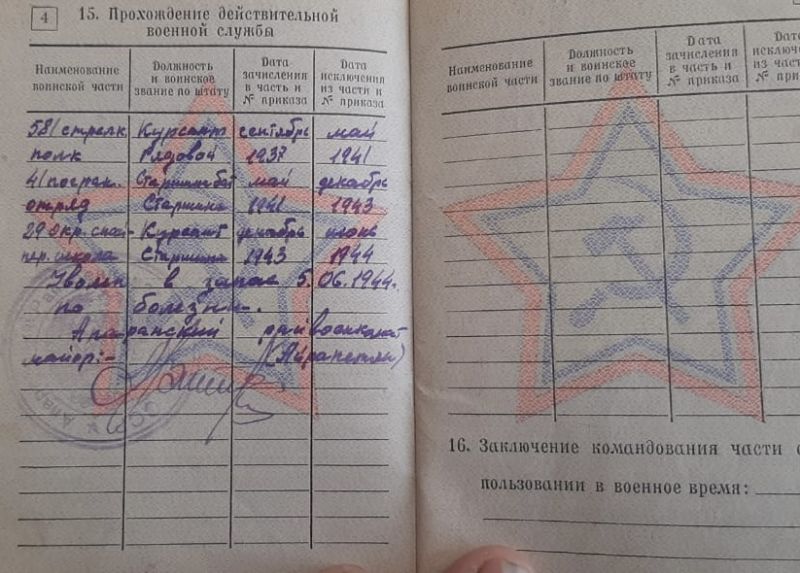 4
15. Прохождение действительной
военной службы
Наименование воинской части
Должность и воинское звание по штату
Дата зачисления в часть и № приказа
Дата исключения из части и № приказа
581 стрелк Курсант сентябрь май
полк Рядовой 1937 1941
41 погран. Старшина май декабрь
отряд Старшина 1941 1943
29 окр. снай- Курсант декабрь июнь
пер. школа Старшина 1943 1944
Уволен в запас 5.06.1944.
по болезни.
Апаранский райвоенкомат
майор:- (Айрапетян)
Наименование воинской части
Должность и воинское звание по штату
Дата зачисления в часть и № приказа
Дата исключе из части № прика
16. Заключение командования части о
пользовании в военное время: